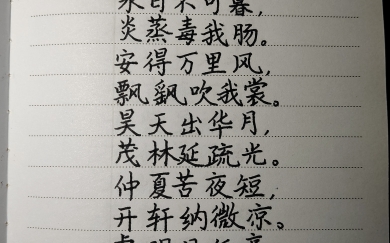 永日不可暮，
炎蒸毒我肠。
安得万里风，
飘飖吹我裳。
昊天出华月，
茂林延疏光。
仲夏苦夜短，
开轩纳微凉。